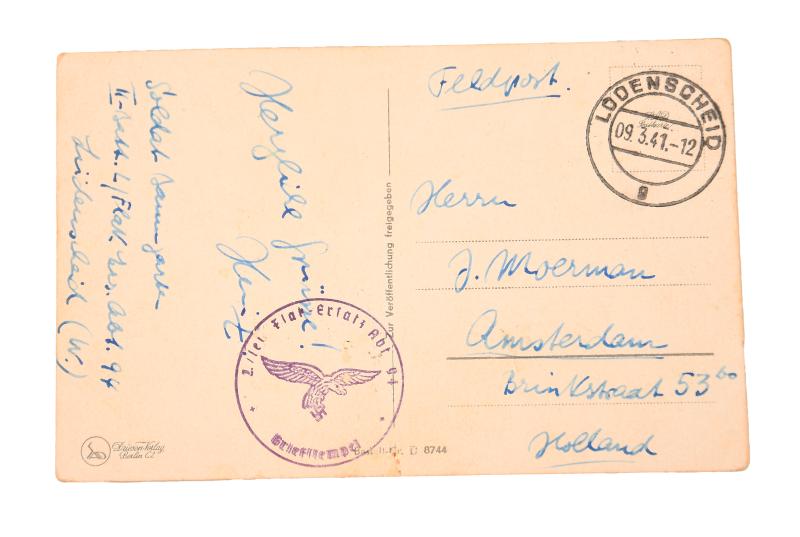 Soldat Baumgarten
II. Batt. L/Flak. Ers. Abt. 94
Lüdenscheid (W.)
Herzliche Grüsse!
Heinz
2./lei. Flak Ersatz Abt. 94
Briefstempel
Feldpost.
LÜDENSCHEID
09.3.41.-12
g
Herrn
J. Moerman
Amsterdam
Brinkstraat 53 bo
Holland
Zur Veröffentlichung freigegeben
Berlin
Best.-Nr. D 8744